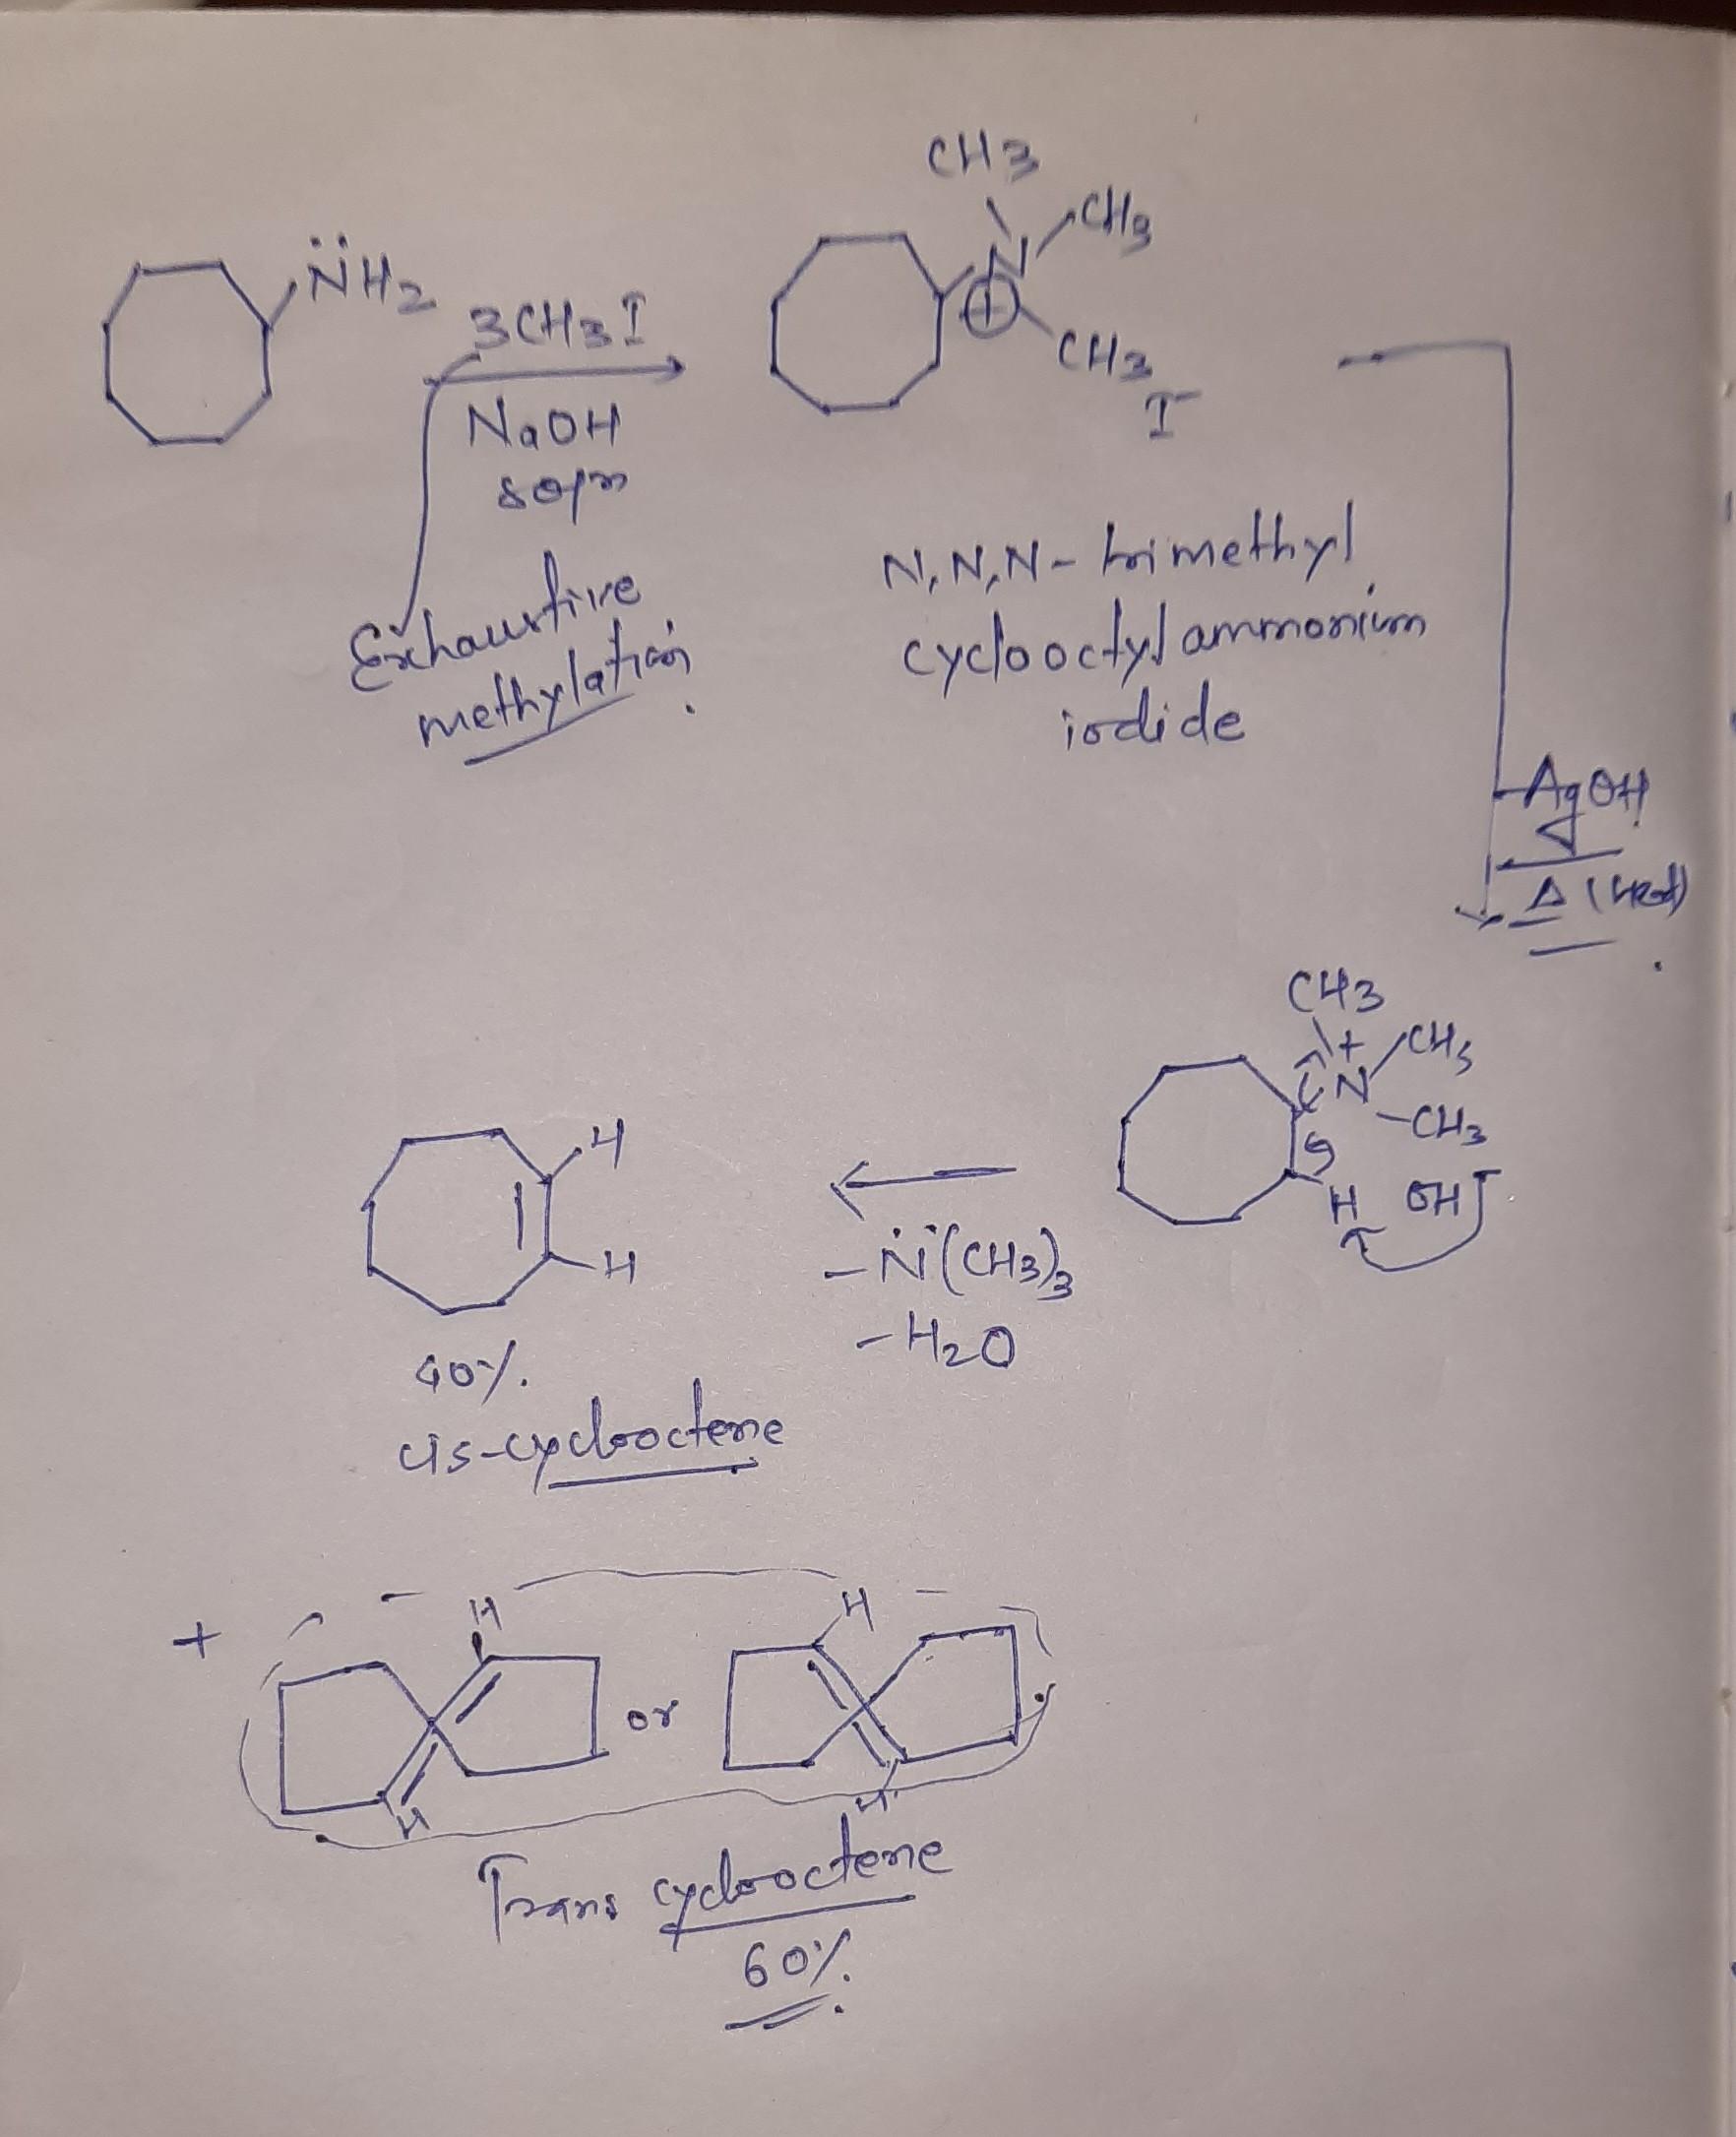 N̈H2
3CH3I
NaOH
soln
Exhaustive
methylation.
CH3
CH3
N
⊕
CH3
I⁻
N,N,N-trimethyl
cyclooctyl ammonium
iodide
AgOH
Δ (heat)
CH3
+
CH3
N
-CH3
H OH
H
H
-N̈(CH3)3
-H2O
40%.
cis-cyclooctene
+
H
H
or
H
H
Trans cyclooctene
60%.